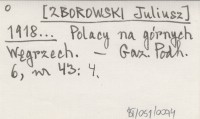 [ZBOROWSKI Juliusz]
1918... Polacy na górnych
Węgrzech. — Gaz. Podh.
6, nr 43: 4.